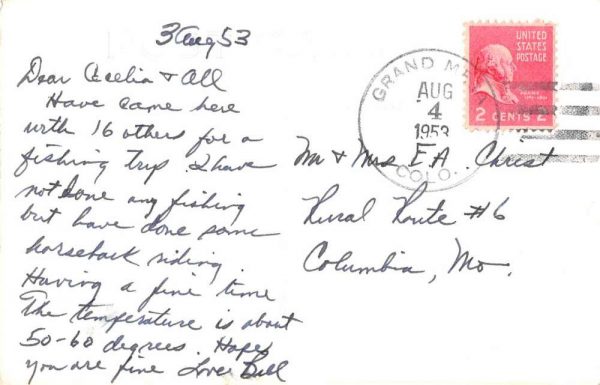 3 Aug 53
Dear Cecelia & All
Have came here
with 16 others for a
fishing trip. I have
not done any fishing
but have done some
horseback riding.
Having a fine time
The temperature is about
50-60 degrees. Hope
you are fine Love Bill
UNITED
STATES
POSTAGE
2 CENTS 2
GRAND MESA
AUG
4
1953
COLO.
Mr & Mrs E.A. Christ
Rural Route #6
Columbia, Mo.